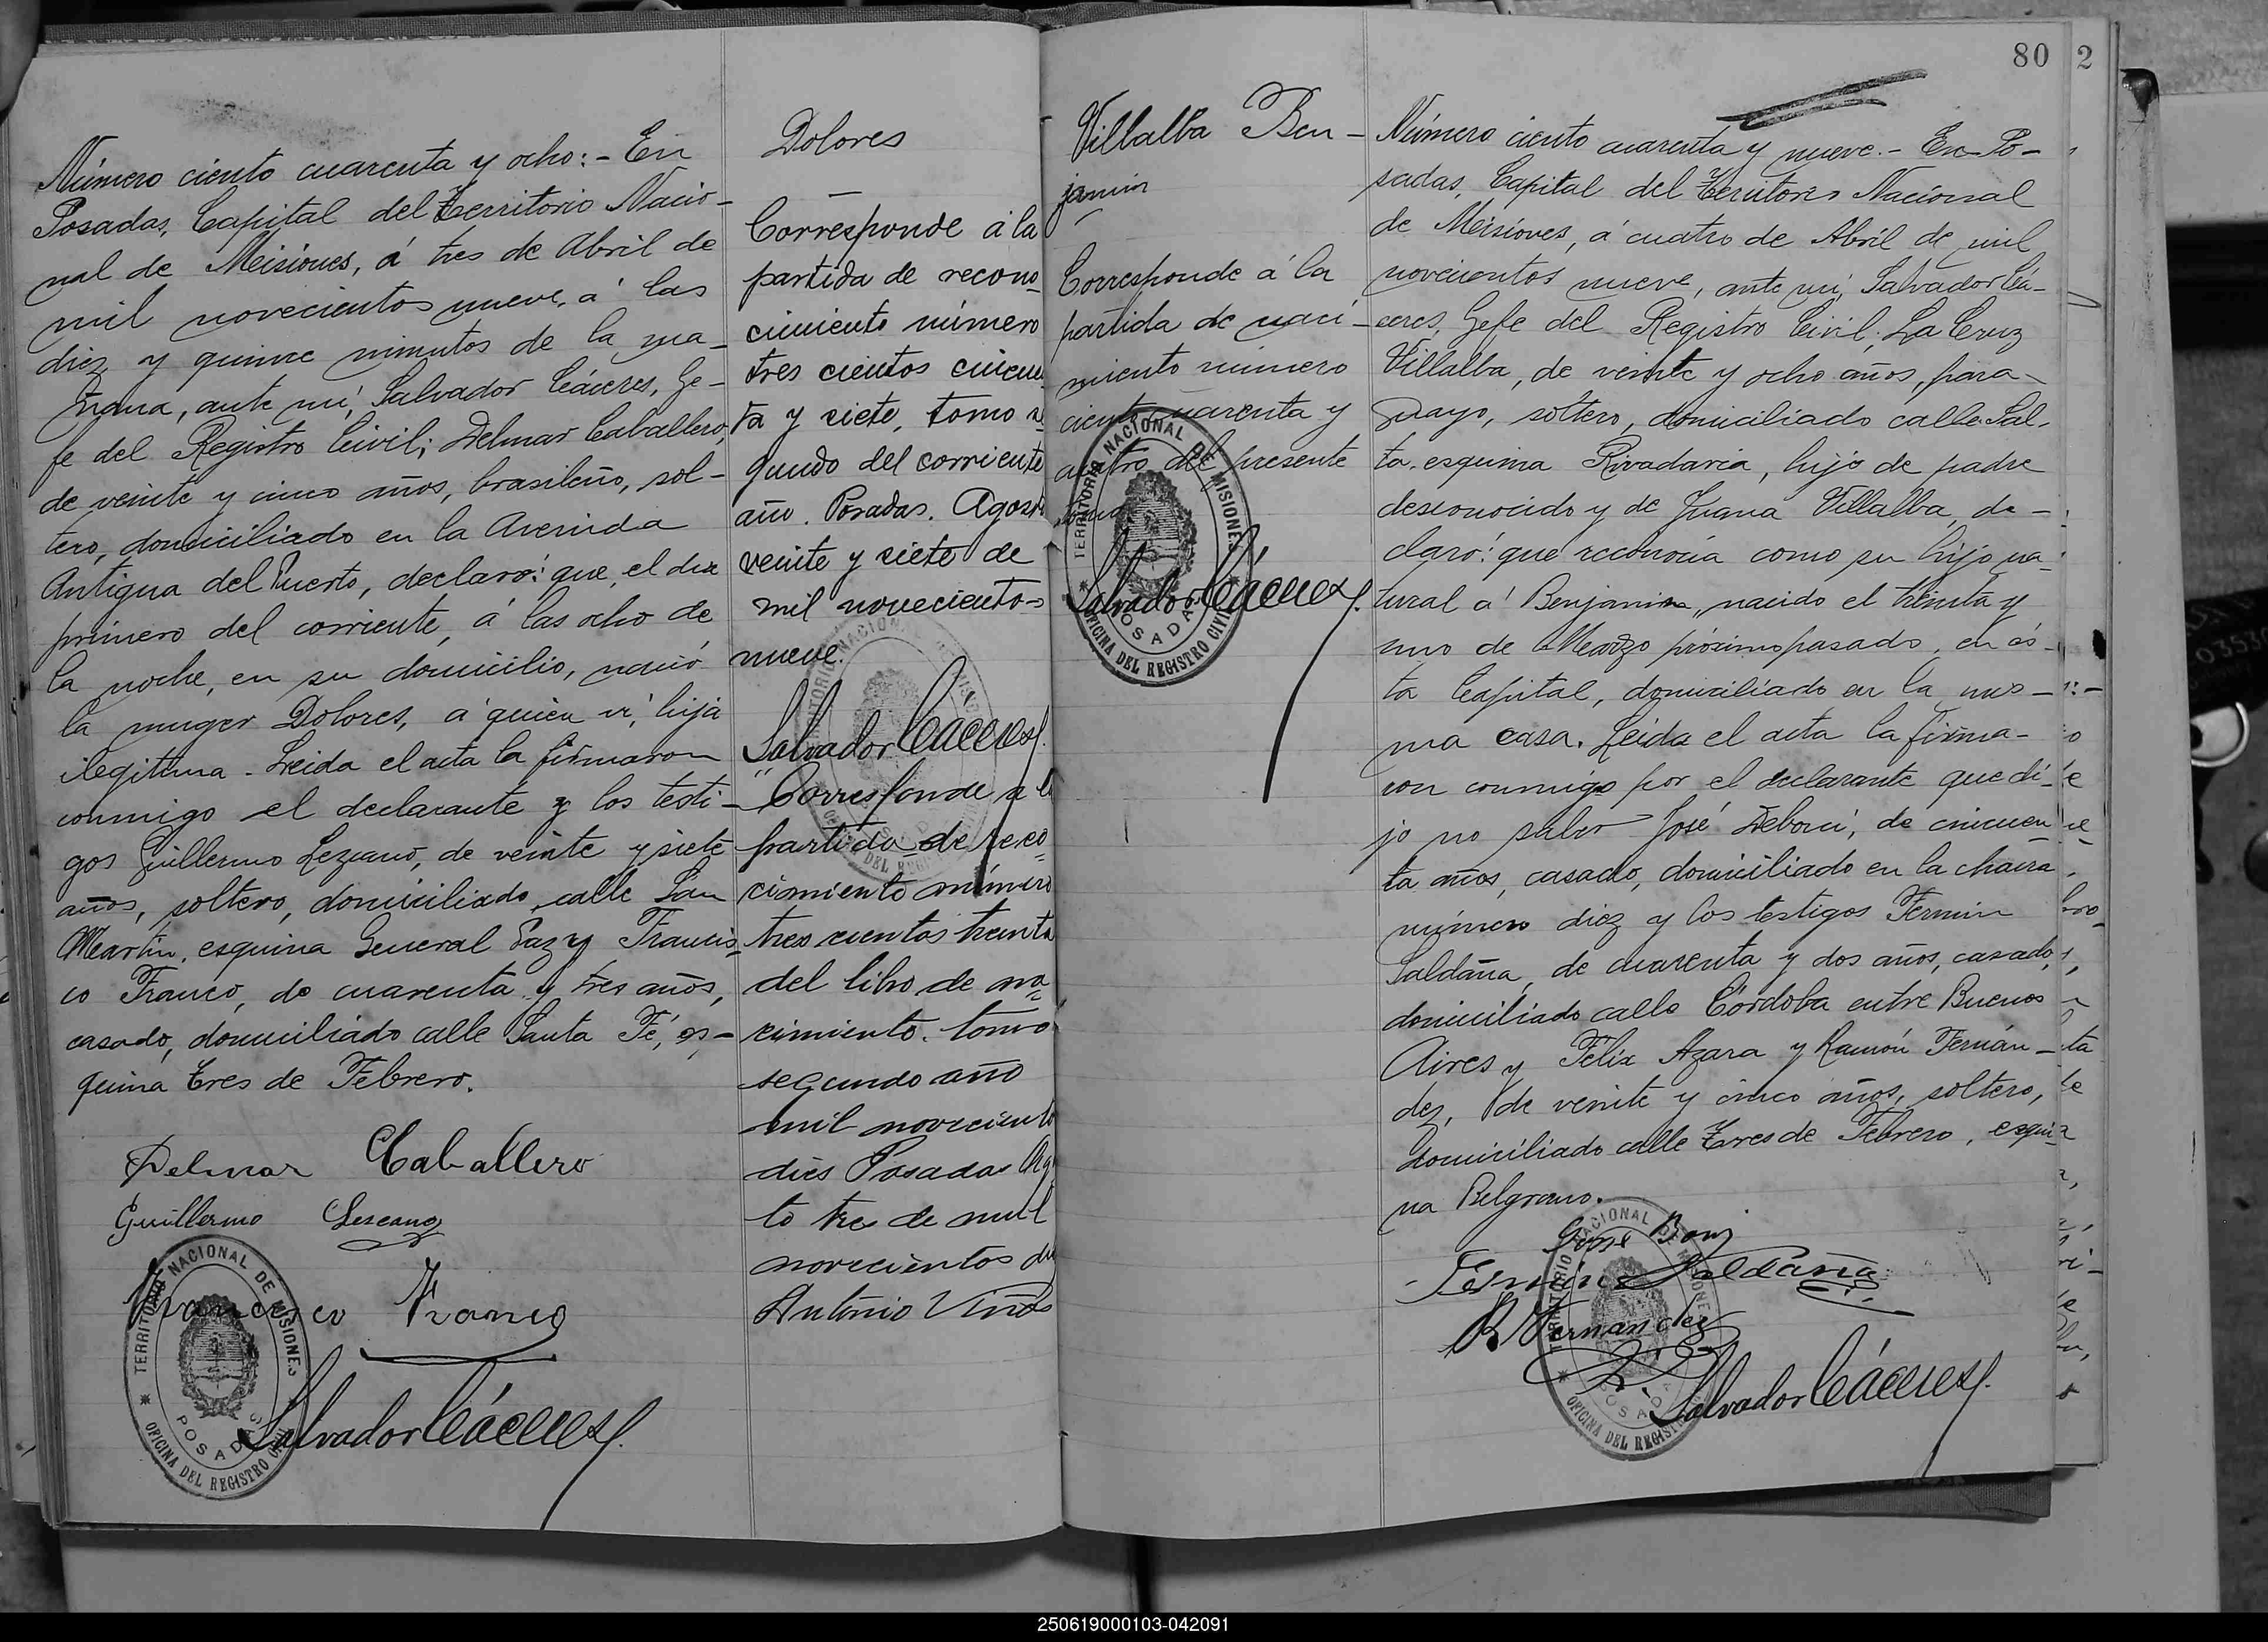 Número ciento cuarenta y ocho:- En
Posadas, Capital del Territorio Nacio-
nal de Meisiones, á tres de Abril de
mil novecientos nueve, á las
diez y quince minutos de la ma-
ñana, ante mí, Salvador Cáceres, Ge-
fe del Registro Civil; Delmar Caballero,
de veinte y cinco años, brasileño, sol-
tero, domiciliado en la Avenida
Antigua del Puerto, declaró: que, el dia
primero del corriente, á las ocho de
la noche, en su domicilio, nació
la muger Dolores, á quien ví, hija
ilegítima - Leida el acta la firmaron
conmigo el declarante y los testi-
gos Guillermo Lezcano, de veinte y siete
años, soltero, domiciliado, calle San
Martin, esquina General Paz y Francis-
co Franco, de cuarenta y tres años,
casado, domiciliado calle Santa Fé, es-
quina Tres de Febrero.
Delmar Caballero
Guillermo Lescano
Francisco Franco
Salvador Cáceres
TERRITORIO NACIONAL DE MISIONES
POSADAS
OFICINA DEL REGISTRO CIVIL
Dolores
Corresponde á la
partida de recono-
cimiento número
tres cientos cincuen
ta y siete, tomo se
gundo del corriente
año. Posadas. Agosto
veinte y siete de
mil novecientos
nueve.
Salvador Cáceres
Corresponde a la
partida de reco-
cimiento número
tres cientos treinta
del libro de na-
cimiento. tomo
segundo año
mil noveciento
dies Posadas Ag
to tres de mil
novecientos di
Antonio Viñas
80
2
Villalba Ben-
jamin
Corresponde á la
partida de naci-
miento número
ciento cuarenta y
cuatro del presente
tomo
Salvador Cáceres
TERRITORIO NACIONAL DE MISIONES
POSADAS
OFICINA DEL REGISTRO CIVIL
Número ciento cuarenta y nueve.- En Po-
sadas, Capital del Territorio Nacional
de Meisiones, á cuatro de Abril de mil
novecientos nueve, ante mí, Salvador Cá-
ceres, Gefe del Registro Civil; La Cruz
Villalba, de veinte y ocho años, para-
guayo, soltero, domiciliado calle Sal-
ta, esquina Rivadavia, hijo de padre
desconocido y de Juana Villalba, de-
claró: que reconocía como su hijo na-
tural á Benjamin, nacido el treinta y
uno de Marzo próximo pasado, en es-
ta Capital, domiciliado en la mis-
ma casa. Leida el acta la firma-
ron conmigo por el declarante que di-
jo no saber José Deboni, de cincuen
ta años, casado, domiciliado en la chacra
número diez y los testigos Fermin
Saldaña, de cuarenta y dos años, casado,
domiciliado calle Córdoba entre Buenos
Aires y Félix Azara y Ramón Fernán-
dez, de veinte y cinco años, soltero,
domiciliado calle Tres de Febrero, esqui-
na Belgrano.
Fermin Saldaña
R. Fernandez
Salvador Cáceres
250619000103-042091